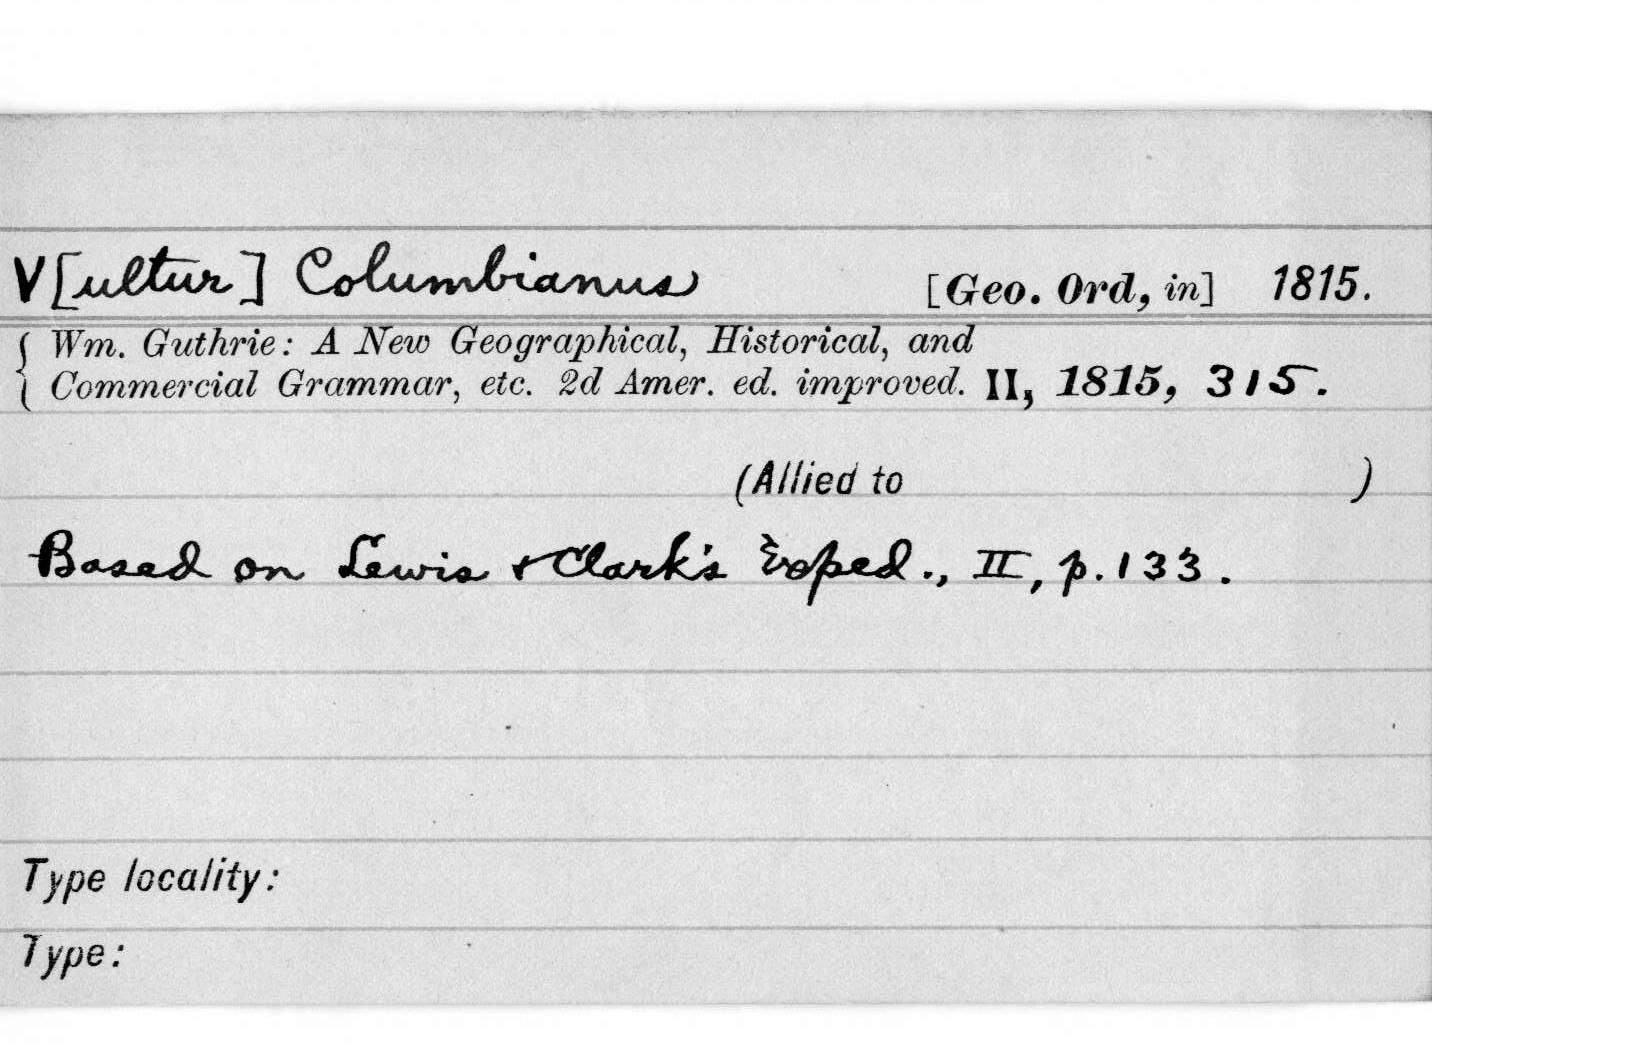 V[ultur] Columbianus [Geo. Ord, in] 1815.
Wm. Guthrie: A New Geographical, Historical, and
Commercial Grammar, etc. 2d Amer. ed. improved. II, 1815, 315.
(Allied to )
Based on Lewis & Clark's Exped., II, p. 133.
Type locality:
Type: